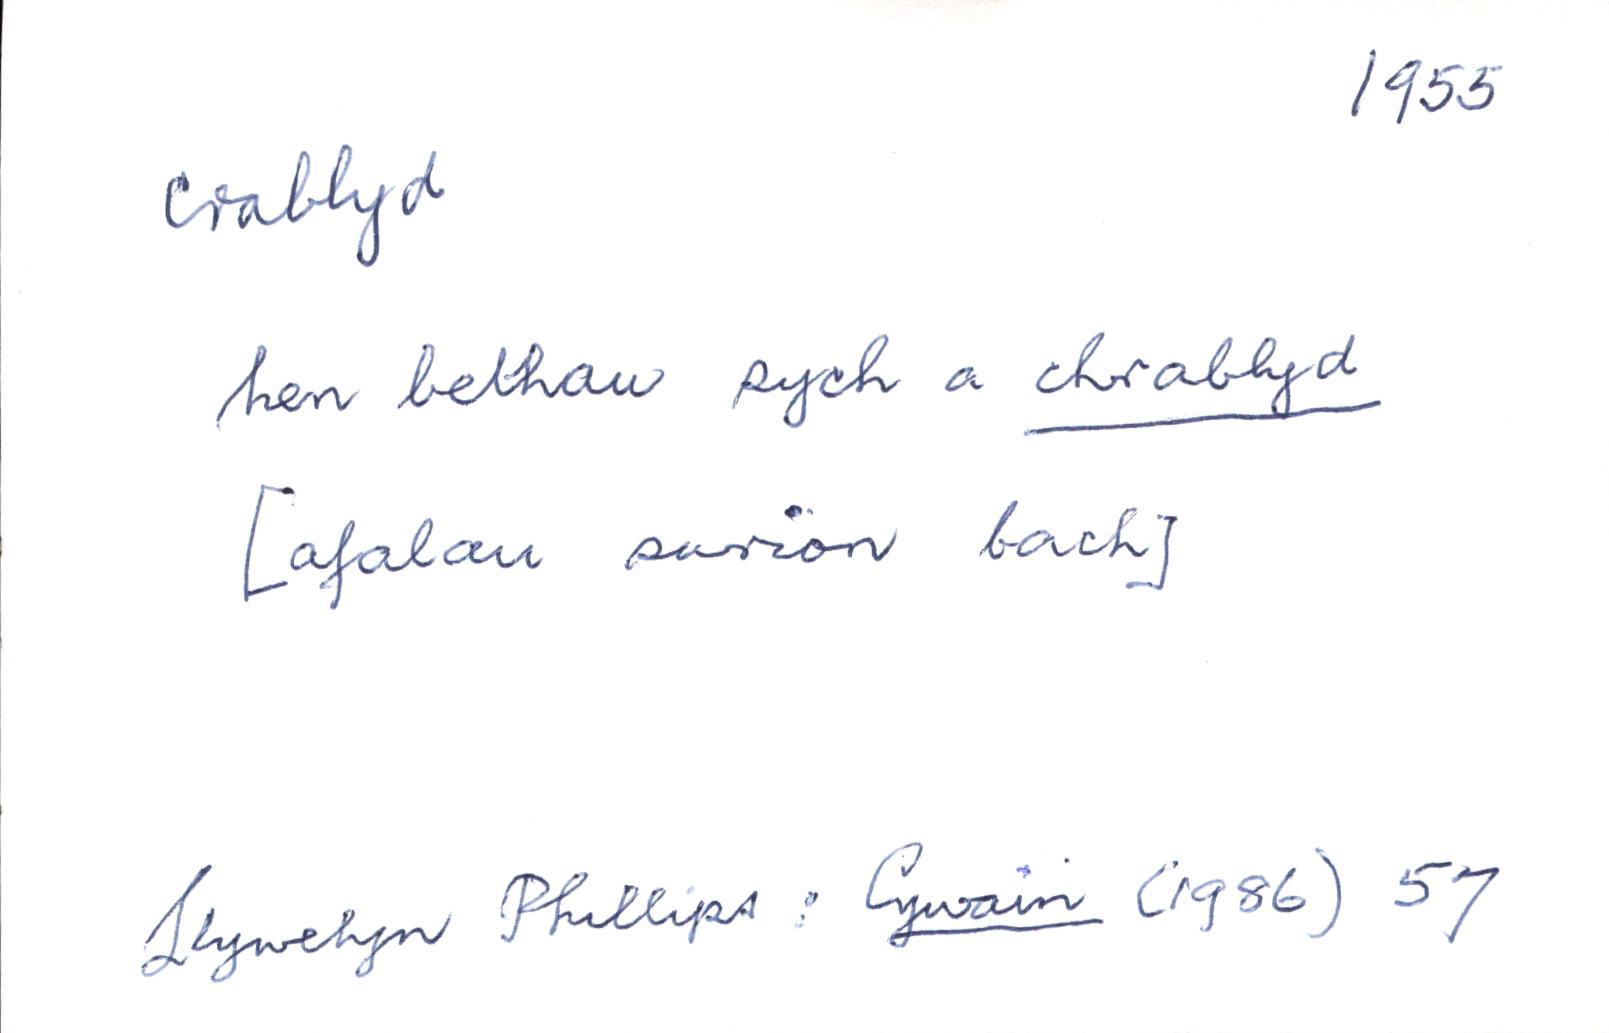 1955
crablyd
hen bethau sych a chrablyd
[afalau surion bach]
Llywelyn Phillips : Cywain (1986) 57